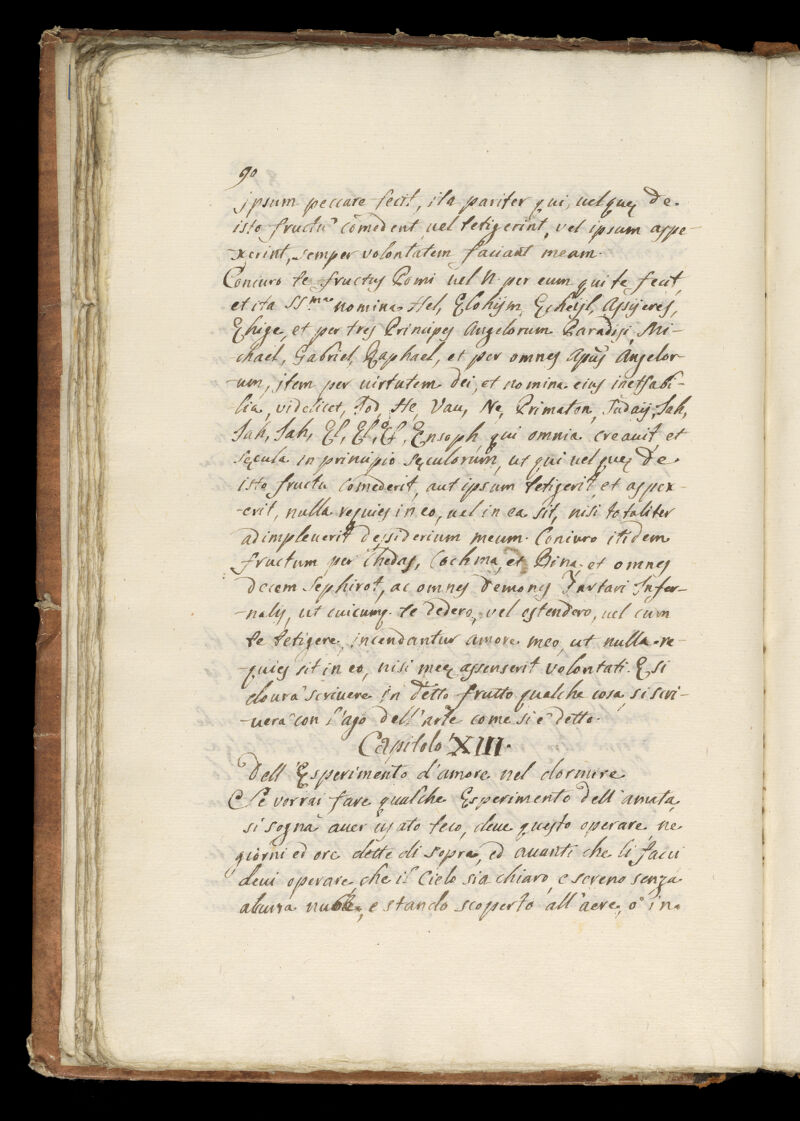 90
ipsum peccare fecit, ita pariter qui, uel quę de
isto fructu comedent uel tetigerint, vel ipsum aspe-
xerint, semper volontatem faciant meam.
Coniuro te fructus Pomi uel N. per eum qui te fecit,
et ita SS.ma nomina Hel, Elohijm,
Ehige, et per tres Principes Angelorum Paradisi, Mi-
chael, Gabriel, Raphael, et per omnes Angelor-
um, item per uirtutem dei, et nomina eius ineffabi-
lia, videlicet, Jod, He, Vau, Ne, Primaton, Judaij, Jah,
Jah, Jah, El, El, El, Ensoph qui omnia creauit et
sęcula in principio sęculorum, ut qui uel quę de
isto fructu comederit, aut ipsum tetigerit, et aspex-
-erit, nulla requies in eo, uel in ea sit, nisi totaliter
adimpleuerit desiderium meum. Coniuro itidem
fructum per Chedas, Cochma, et Bina, et omnes
decem Sephirot, ac omnes Demones Tartari Infer-
-nalis, ut cuicumq. te dedero, vel estendero, uel cum
te tetigere, incendantur amore meo, ut nulla re-
-quies sit in eo, nisi meę assenserit volontati. E si
dourà scriuere in detto frutto qualche cosa, si scri-
-uerà con l'ago dell'arte come si è detto.
Capitolo XIII.
Dell'Esperimento d'amore nel dormire
Se vorrai fare qualche Esperimento dell'amata,
si sogna auer usato teco, deue questo operare ne
giorni ed ore dette di sopra, ed auanti che li facci
deui operare, che il Cielo sia chiaro, e sereno senza
alcuna nube, e stando scoperto all'aere, o in